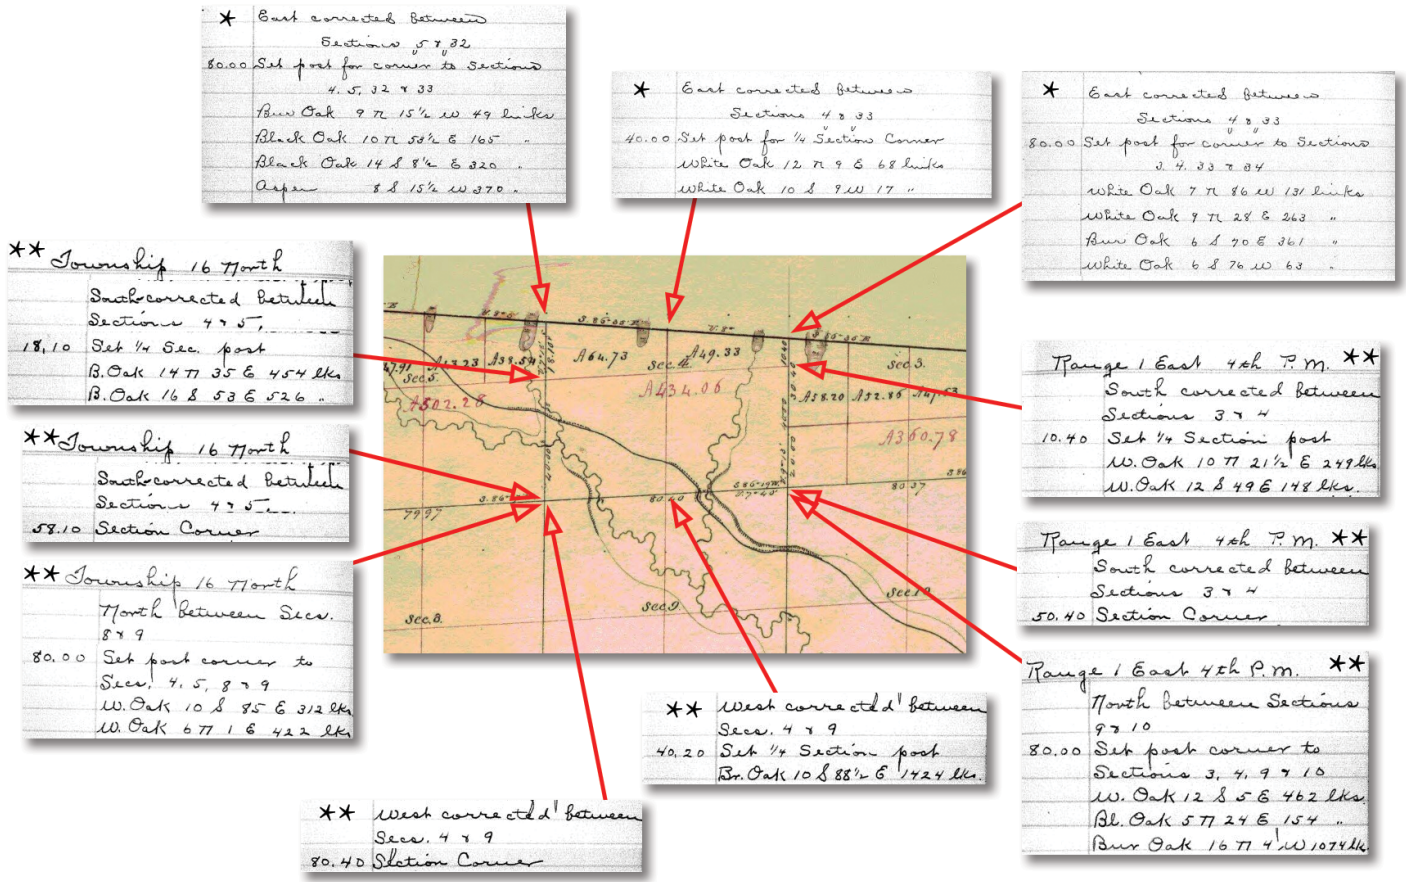 * East corrected between
Sections 5 & 32
80.00 Set post for corner to Sections
4. 5, 32 & 33
Bur Oak 9 N 15½ W 49 links
Black Oak 10 N 53½ E 165 "
Black Oak 14 S 8½ E 320 "
Aspen 8 S 15½ W 370 "
* East corrected between
Sections 4 & 33
40.00 Set post for ¼ Section Corner
White Oak 12 N 9 E 68 links
White Oak 10 S 9 W 17 "
* East corrected between
Sections 4 & 33
80.00 Set post for corner to Sections
3. 4. 33 & 34
White Oak 7 N 86 W 131 links
White Oak 9 N 28 E 263 "
Bur Oak 6 S 70 E 361 "
White Oak 6 S 76 W 63 "
** Township 16 North
South corrected between
Sections 4 & 5,
18,10 Set ¼ Sec. post
B. Oak 14 N 35 E 454 lks
B. Oak 16 S 53 E 526 "
** Township 16 North
South corrected between
Sections 4 & 5
58.10 Section Corner
** Township 16 North
North between Secs.
8 & 9
80.00 Set post corner to
Secs, 4, 5, 8 & 9
W. Oak 10 S 85 E 312 lks
W. Oak 6 N 1 E 422 lks
S.86-35 E
A 38.54
A 64.73
A 49.33
Sec. 5.
Sec. 4.
Sec. 3.
A 502.28
A 434.06
A 58.20
A 52.86
A 360.78
S.86-19 W
80.40
80.37
79.97
Sec. 8.
Sec. 9
Sec. 10
Range 1 East 4th P.M. **
South corrected between
Sections 3 & 4
10.40 Set ¼ Section post
W. Oak 10 N 21½ E 249 lks
W. Oak 12 S 49 E 148 lks.
Range 1 East 4th P.M. **
South corrected between
Sections 3 & 4
50.40 Section Corner
Range 1 East 4th P.M. **
North between Sections
9 & 10
80.00 Set post corner to
Sections 3, 4, 9 & 10
W. Oak 12 S 5 E 462 lks
Bl. Oak 5 N 24 E 154 "
Bur Oak 16 N 4 W 1074 lk
** West corrected between
Secs. 4 & 9
40,20 Set ¼ Section post
Br. Oak 10 S 88½ E 1424 lks.
** West corrected between
Secs. 4 & 9
80.40 Section Corner